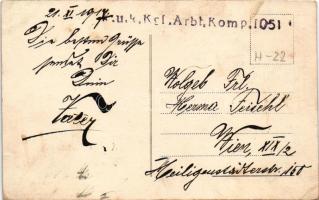 21. XI. 1917.
u. k. Kgf. Arbt. Komp. 1051
Die besten Grüsse
sendet Dir
Dein
Vater
H-22
Wolgeb Frl.
Herma
Wien, XIX/2
Heiligenstädterstr. 150